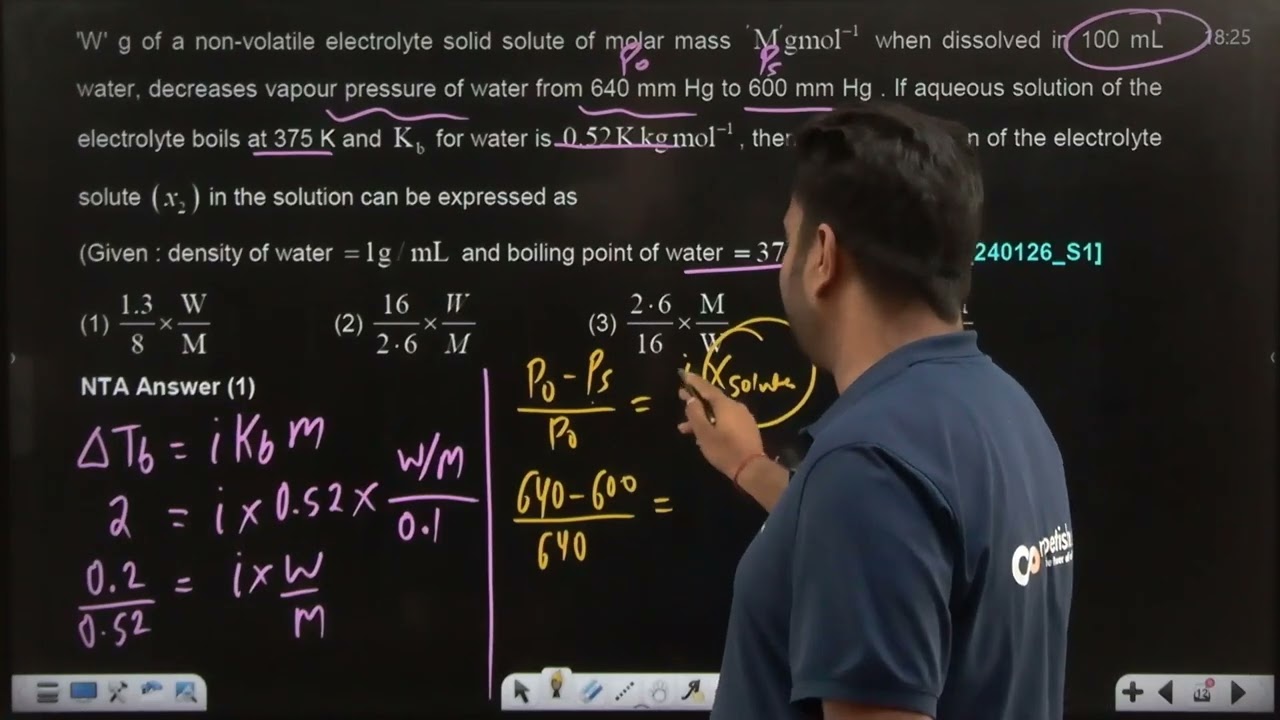 'W' g of a non-volatile electrolyte solid solute of molar mass 'M' gmol⁻¹ when dissolved in 100 mL 18:25
P₀ Pₛ
water, decreases vapour pressure of water from 640 mm Hg to 600 mm Hg . If aqueous solution of the
electrolyte boils at 375 K and K_b for water is 0.52 K kg mol⁻¹ , n of the electrolyte
solute (x₂) in the solution can be expressed as
(Given : density of water = 1g / mL and boiling point of water = 37 240126_S1]
(1) 1.3/8 × W/M (2) 16/2·6 × W/M (3) 2·6/16 × M/W
NTA Answer (1)
ΔT_b = i K_b m
2 = i × 0.52 × (W/M)/0.1
0.2/0.52 = i × W/M
(P₀ - Pₛ)/P₀ = i X solute
(640 - 600)/640 =
12